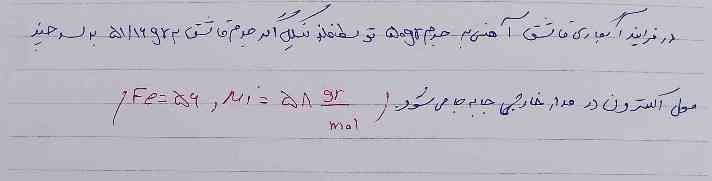 در فرایند آبکاری قاشق آهنی به جرم 50gr توسط فلز نیکل اگر جرم قاشق به 51/16gr برسد چند
مول الکترون در مدار خارجی جابه جا می شود. (Fe=56 , Ni=58 gr/mol)